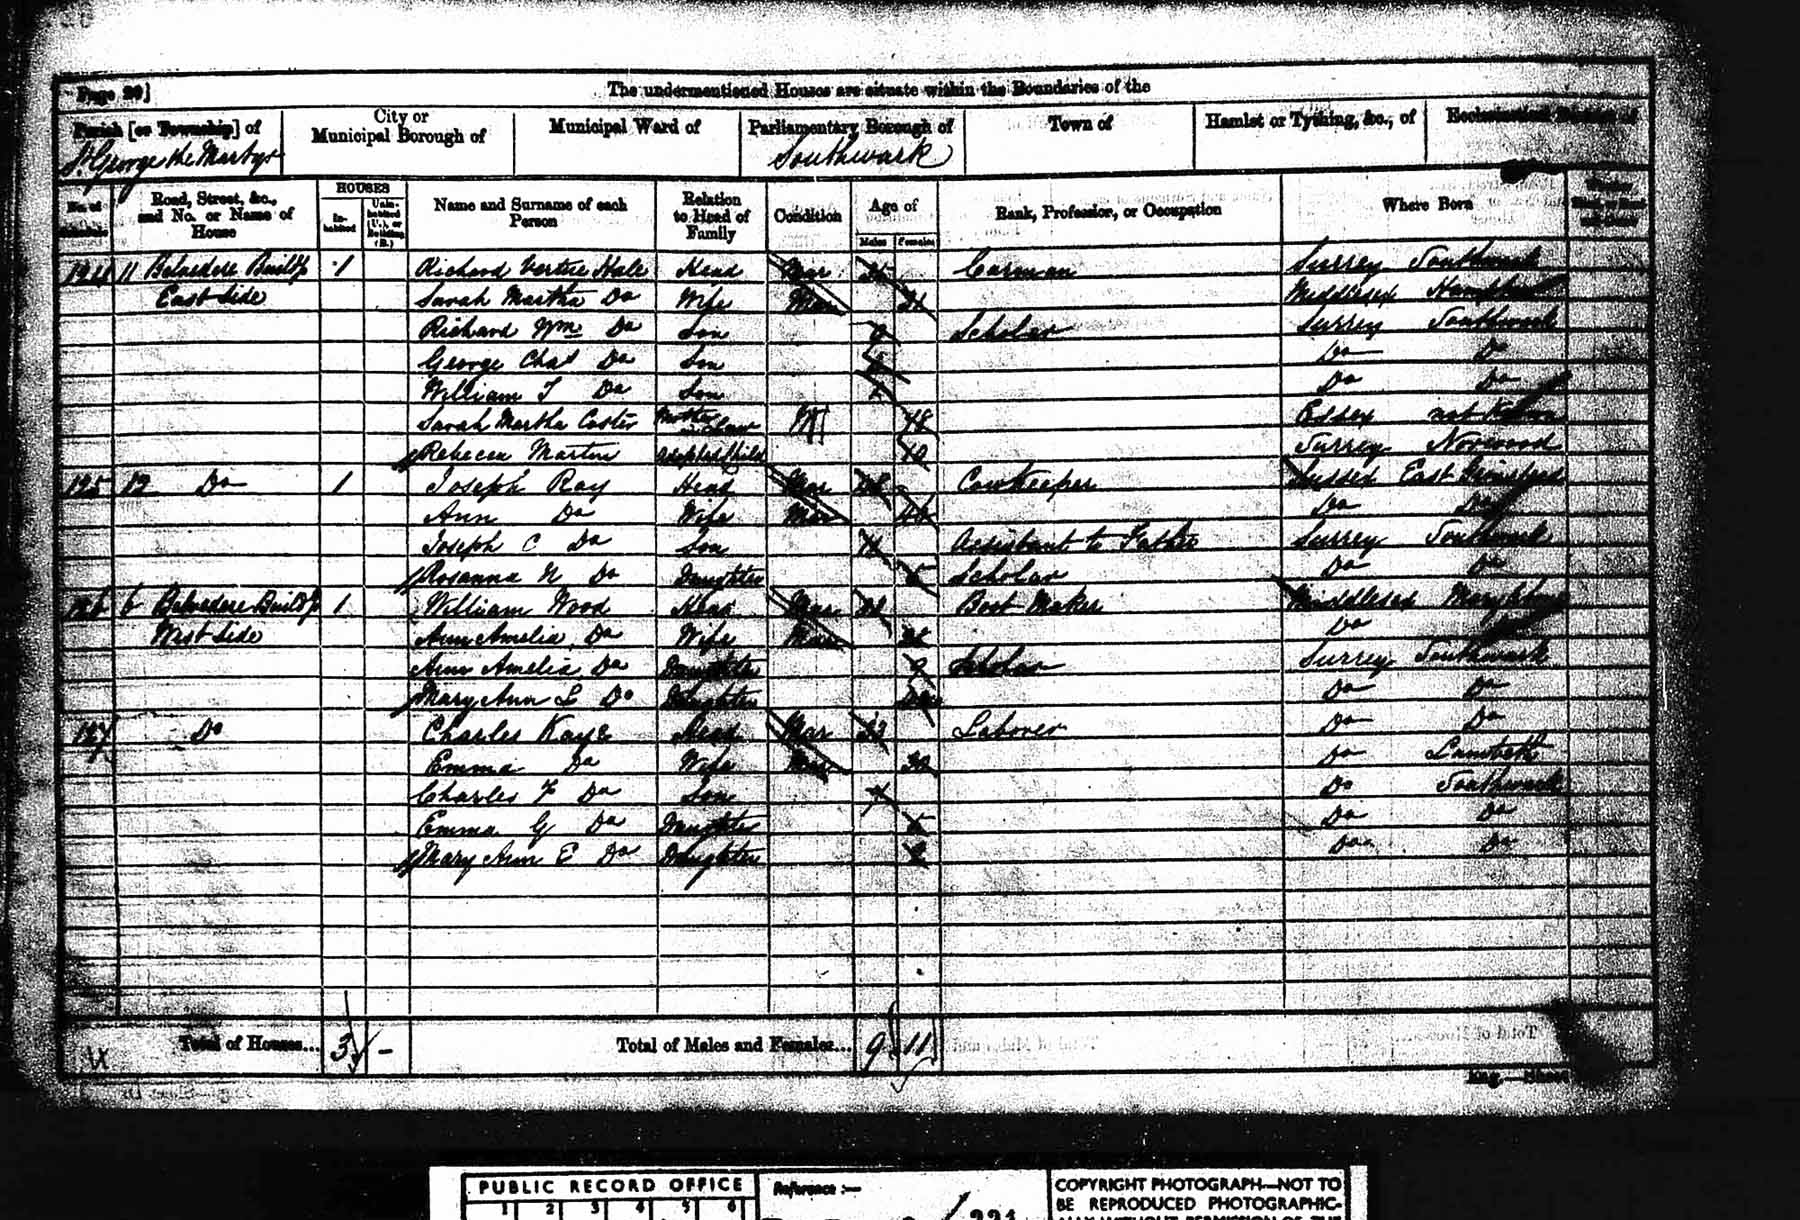 Page 20]
The undermentioned Houses are situate within the Boundaries of the
Parish [or Township] of
City or Municipal Borough of
Municipal Ward of
Parliamentary Borough of
Town of
Hamlet or Tything, &c., of
Ecclesiastical District of
St. George the Martyr
Southwark
No. of Schedule
Road, Street, &c., and No. or Name of House
HOUSES
In-habited
Unin-habited (U.), or Building (B.)
Name and Surname of each Person
Relation to Head of Family
Condition
Age of
Males
Females
Rank, Profession, or Occupation
Where Born
124 11 Belvedere Buildgs 1 Richard Vertue Hale Head Mar Carman Surrey Southwark
East Side Sarah Martha Do Wife Mar Middlesex
Richard Wm Do Son 9 Scholar Surrey Southwark
George Chas Do Son Do Do
William T Do Son Do Do
Sarah Martha Coster Mother in Law 48 Essex not Known
Rebecca Martin Adopted Child 10 Surrey Norwood
125 12 Do 1 Joseph Ray Head Mar 48 Cowkeeper Sussex East Grinstead
Ann Do Wife Mar Do Do
Joseph C Do Son Assistant to Father Surrey Southwark
Rosanna N Do Daughter Scholar Do Do
126 6 Belvedere Buildgs 1 William Wood Head Mar Boot Maker Middlesex Marylebone
West Side Ann Amelia Do Wife Mar Do
Ann Amelia Do Daughter 9 Scholar Surrey Southwark
Mary Ann L Do Daughter Do Do
127 Do Charles Kaye Head Mar Labourer Do Do
Emma Do Wife Mar 30 Do Lambeth
Charles F Do Son Do Southwark
Emma G Do Daughter Do Do
Mary Ann E Do Daughter Do Do
Total of Houses... 3 -
Total of Males and Females... 9 11
Eng.—Sheet
PUBLIC RECORD OFFICE
1 2 3 4 5 6
Reference :—
COPYRIGHT PHOTOGRAPH—NOT TO
BE REPRODUCED PHOTOGRAPHIC-